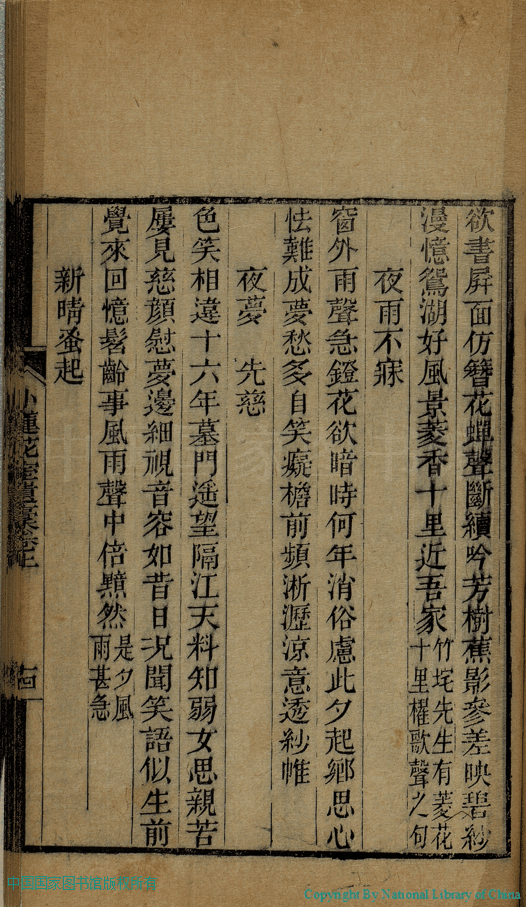 欲書屏面仿簪花蟬聲斷續吟芳樹蕉影參差映碧紗
漫憶鴛湖好風景菱香十里近吾家竹垞先生有菱花十里櫂歌聲之句
夜雨不寐
窗外雨聲急鐙花欲暗時何年消俗慮此夕起鄉思心
怯難成夢愁多自笑癡檐前頻淅瀝涼意透紗帷
夜夢　先慈
色笑相違十六年墓門遥望隔江天料知弱女思親苦
屢見慈顔慰夢邊細視音容如昔日况聞笑語似生前
覺來回憶髫齡事風雨聲中倍黯然是夕風雨甚急
新晴蚤起
小蓮花室遺稾卷上
十四
中国国家图书馆版权所有
Copyright By National Library of China